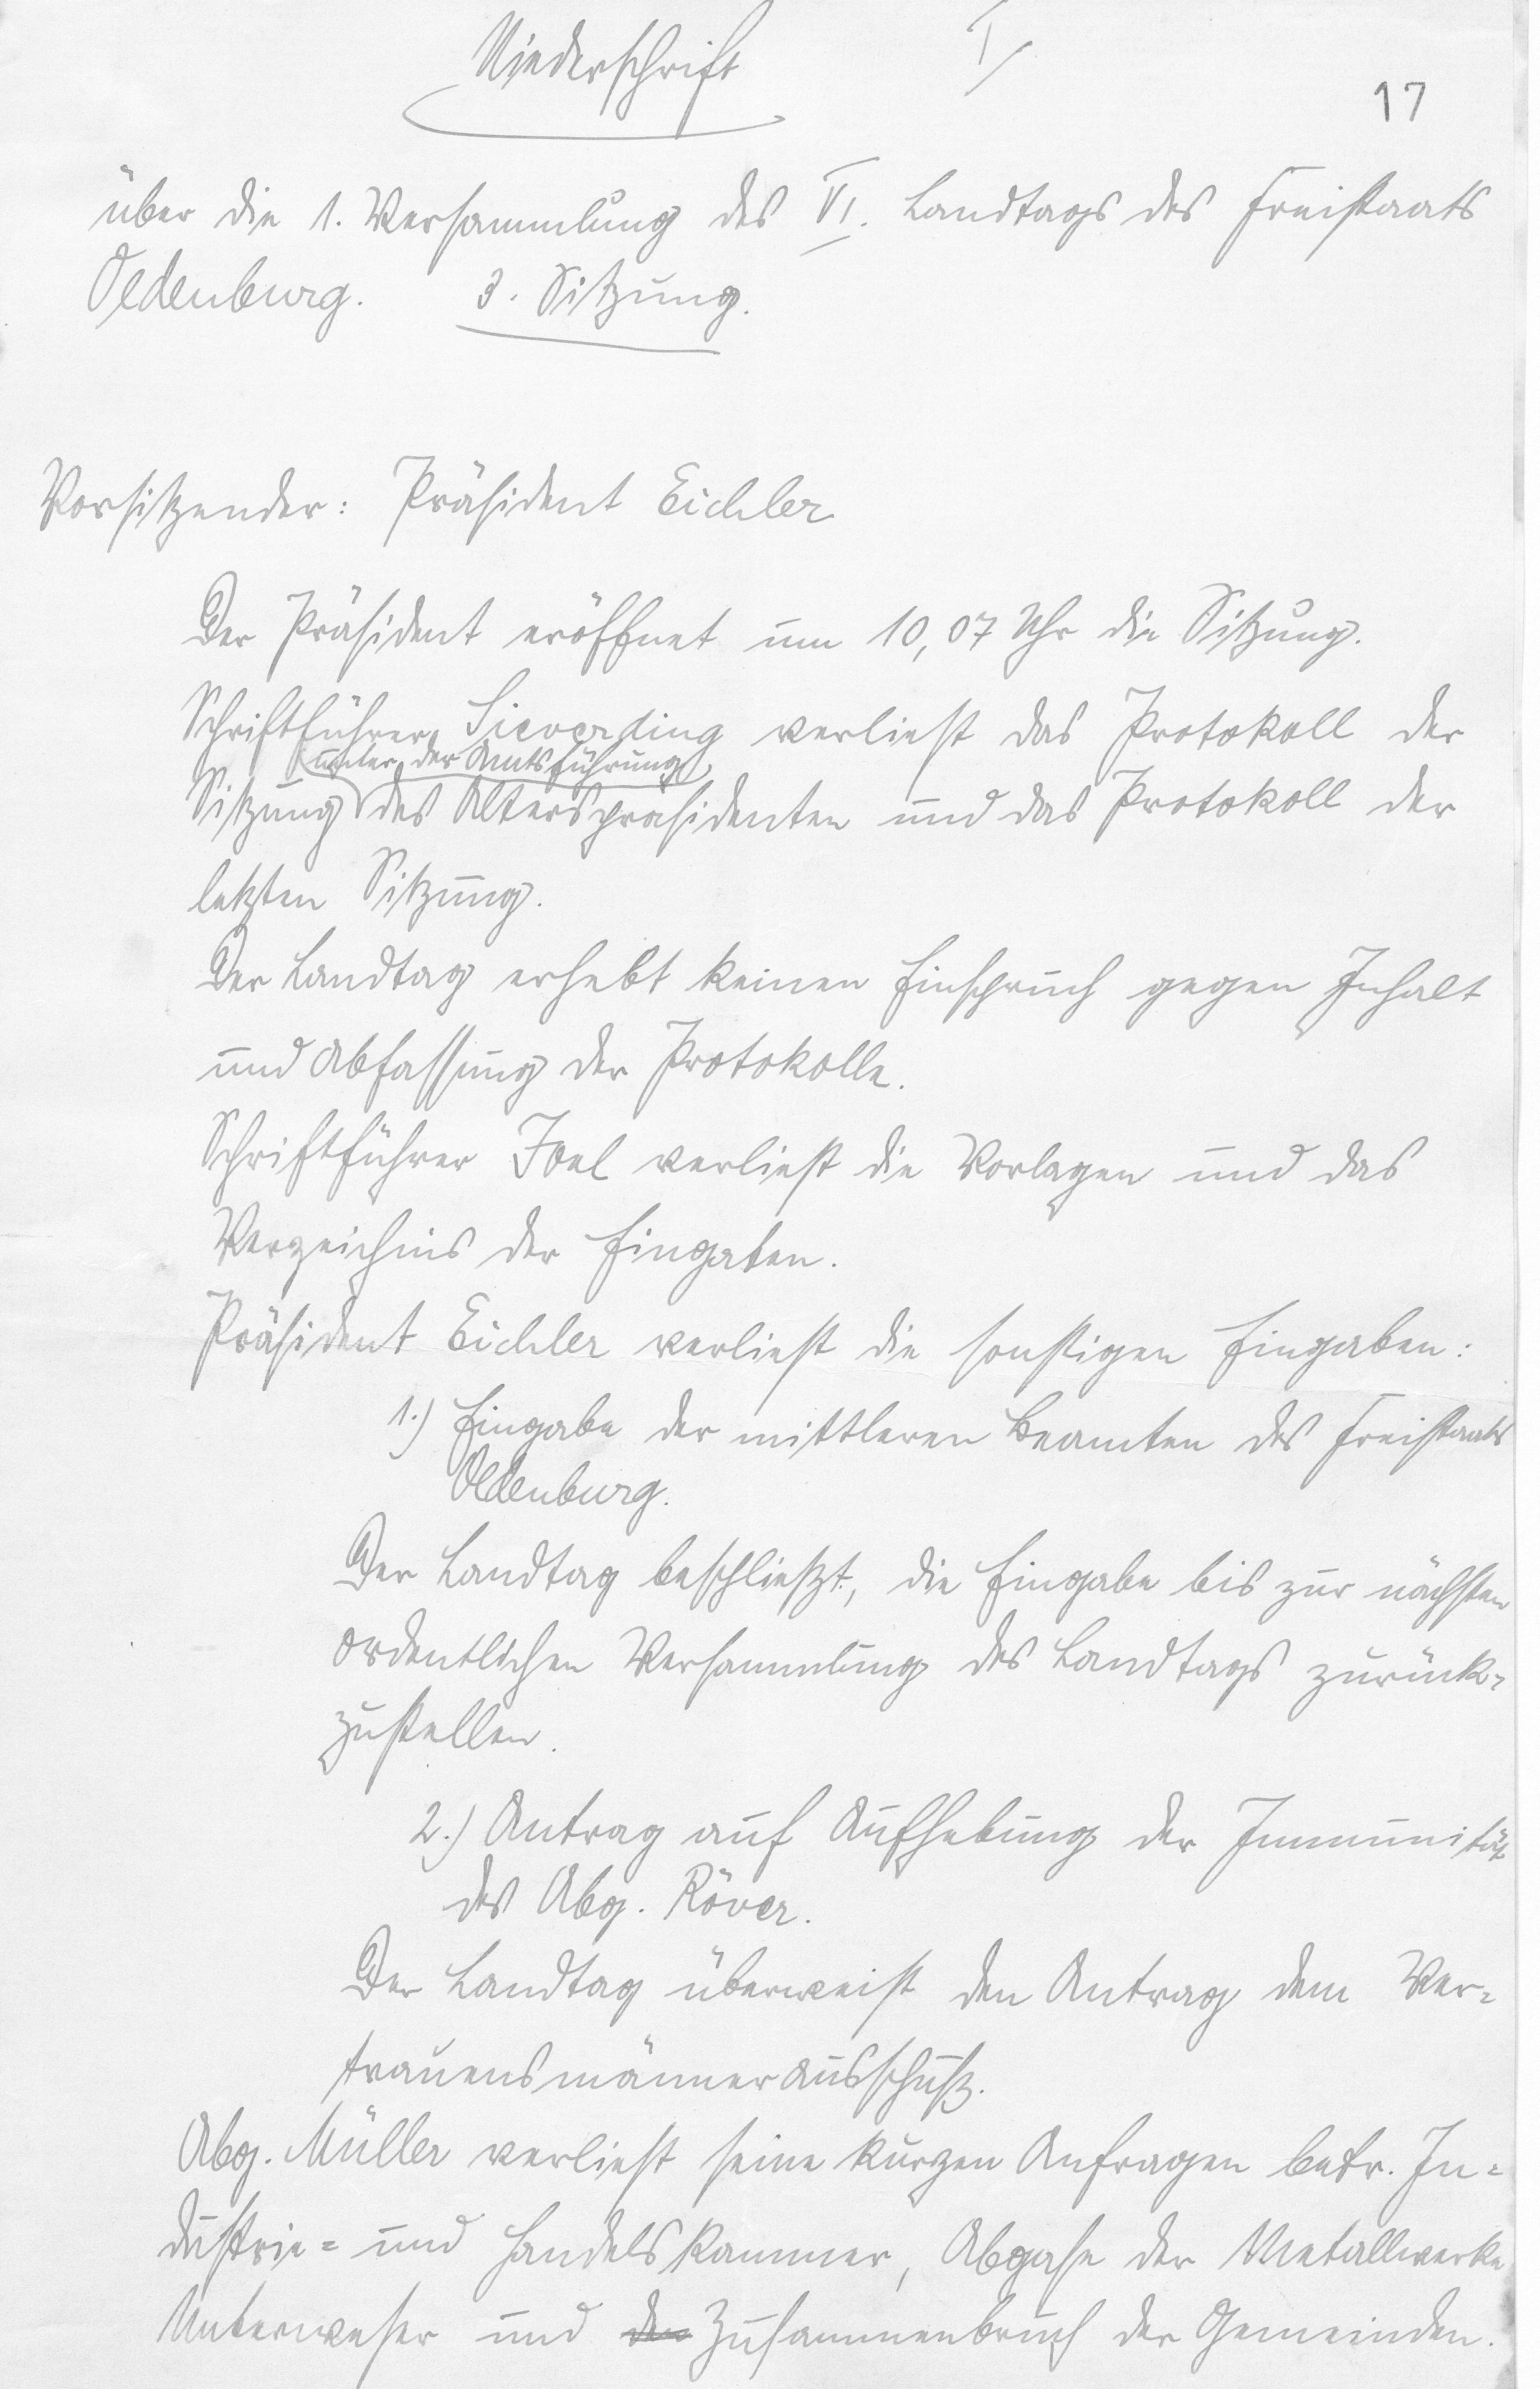 Niederschrift I/
17
über die 1. Versammlung des VI. Landtags des Freistaats
Oldenburg. 3. Sitzung.
Vorsitzender: Präsident Eichler
Der Präsident eröffnet um 10,07 Uhr die Sitzung.
Schriftführer Sieverding verliest das Protokoll der
unter der Amtsführung
Sitzung des Alterspräsidenten und das Protokoll der
letzten Sitzung.
Der Landtag erhebt keinen Einspruch gegen Inhalt
und Abfassung der Protokolle.
Schriftführer Joel verliest die Vorlagen und das
Verzeichnis der Eingaben.
Präsident Eichler verliest die sonstigen Eingaben:
1.) Eingabe der mittleren Beamten des Freistaats
Oldenburg.
Der Landtag beschließt, die Eingabe bis zur nächsten
ordentlichen Versammlung des Landtags zurück-
zustellen.
2.) Antrag auf Aufhebung der Immunität
des Abg. Röver.
Der Landtag überweist den Antrag dem Ver-
trauensmännerausschuß.
Abg. Müller verliest seine kurzen Anfragen betr. In-
dustrie- und Handelskammer, Abgase der Metallwerke
Unterweser und den Zusammenbruch der Gemeinden.